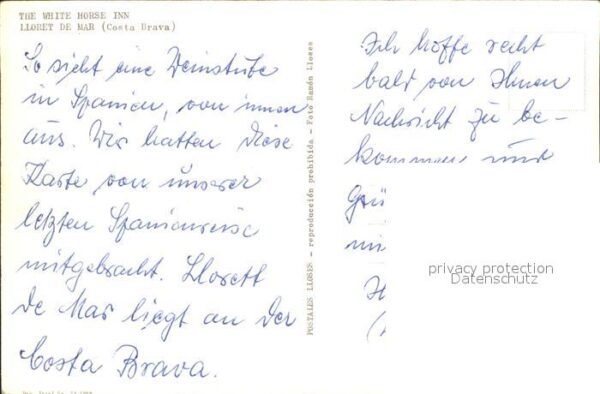 THE WHITE HORSE INN
LLORET DE MAR (Costa Brava)
So sieht eine Weinstube
in Spanien, von innen
aus. Wir hatten diese
Karte von unserer
letzten Spanienreise
mitgebracht. Llorett
de Mar liegt an der
Costa Brava.
POSTALES LLOSES - reproducción prohibida - Foto Ramón Lloses
Ich hoffe recht
bald von Ihnen
Nachricht zu be-
kommen und
Grü
mi
H
privacy protection
Datenschutz